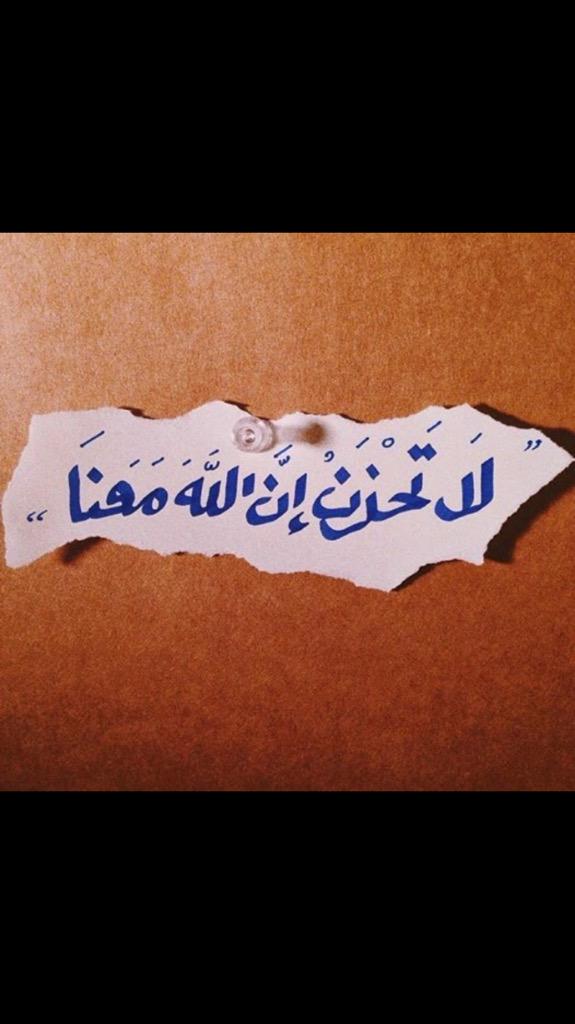 ” لَا تَحْزَنْ إِنَّ اللَّهَ مَعَنَا “